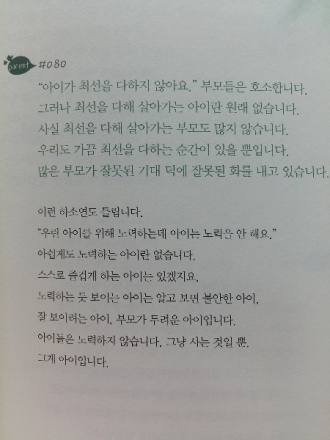 #080
“아이가 최선을 다하지 않아요.” 부모들은 호소합니다.
그러나 최선을 다해 살아가는 아이란 원래 없습니다.
사실 최선을 다해 살아가는 부모도 많지 않습니다.
우리도 가끔 최선을 다하는 순간이 있을 뿐입니다.
많은 부모가 잘못된 기대 덕에 잘못된 화를 내고 있습니다.
이런 하소연도 들립니다.
“우린 아이를 위해 노력하는데 아이는 노력을 안 해요.”
아쉽게도 노력하는 아이란 없습니다.
스스로 즐겁게 하는 아이는 있겠지요.
노력하는 듯 보이는 아이는 알고 보면 불안한 아이,
잘 보이려는 아이, 부모가 두려운 아이입니다.
아이들은 노력하지 않습니다. 그냥 사는 것일 뿐.
그게 아이입니다.